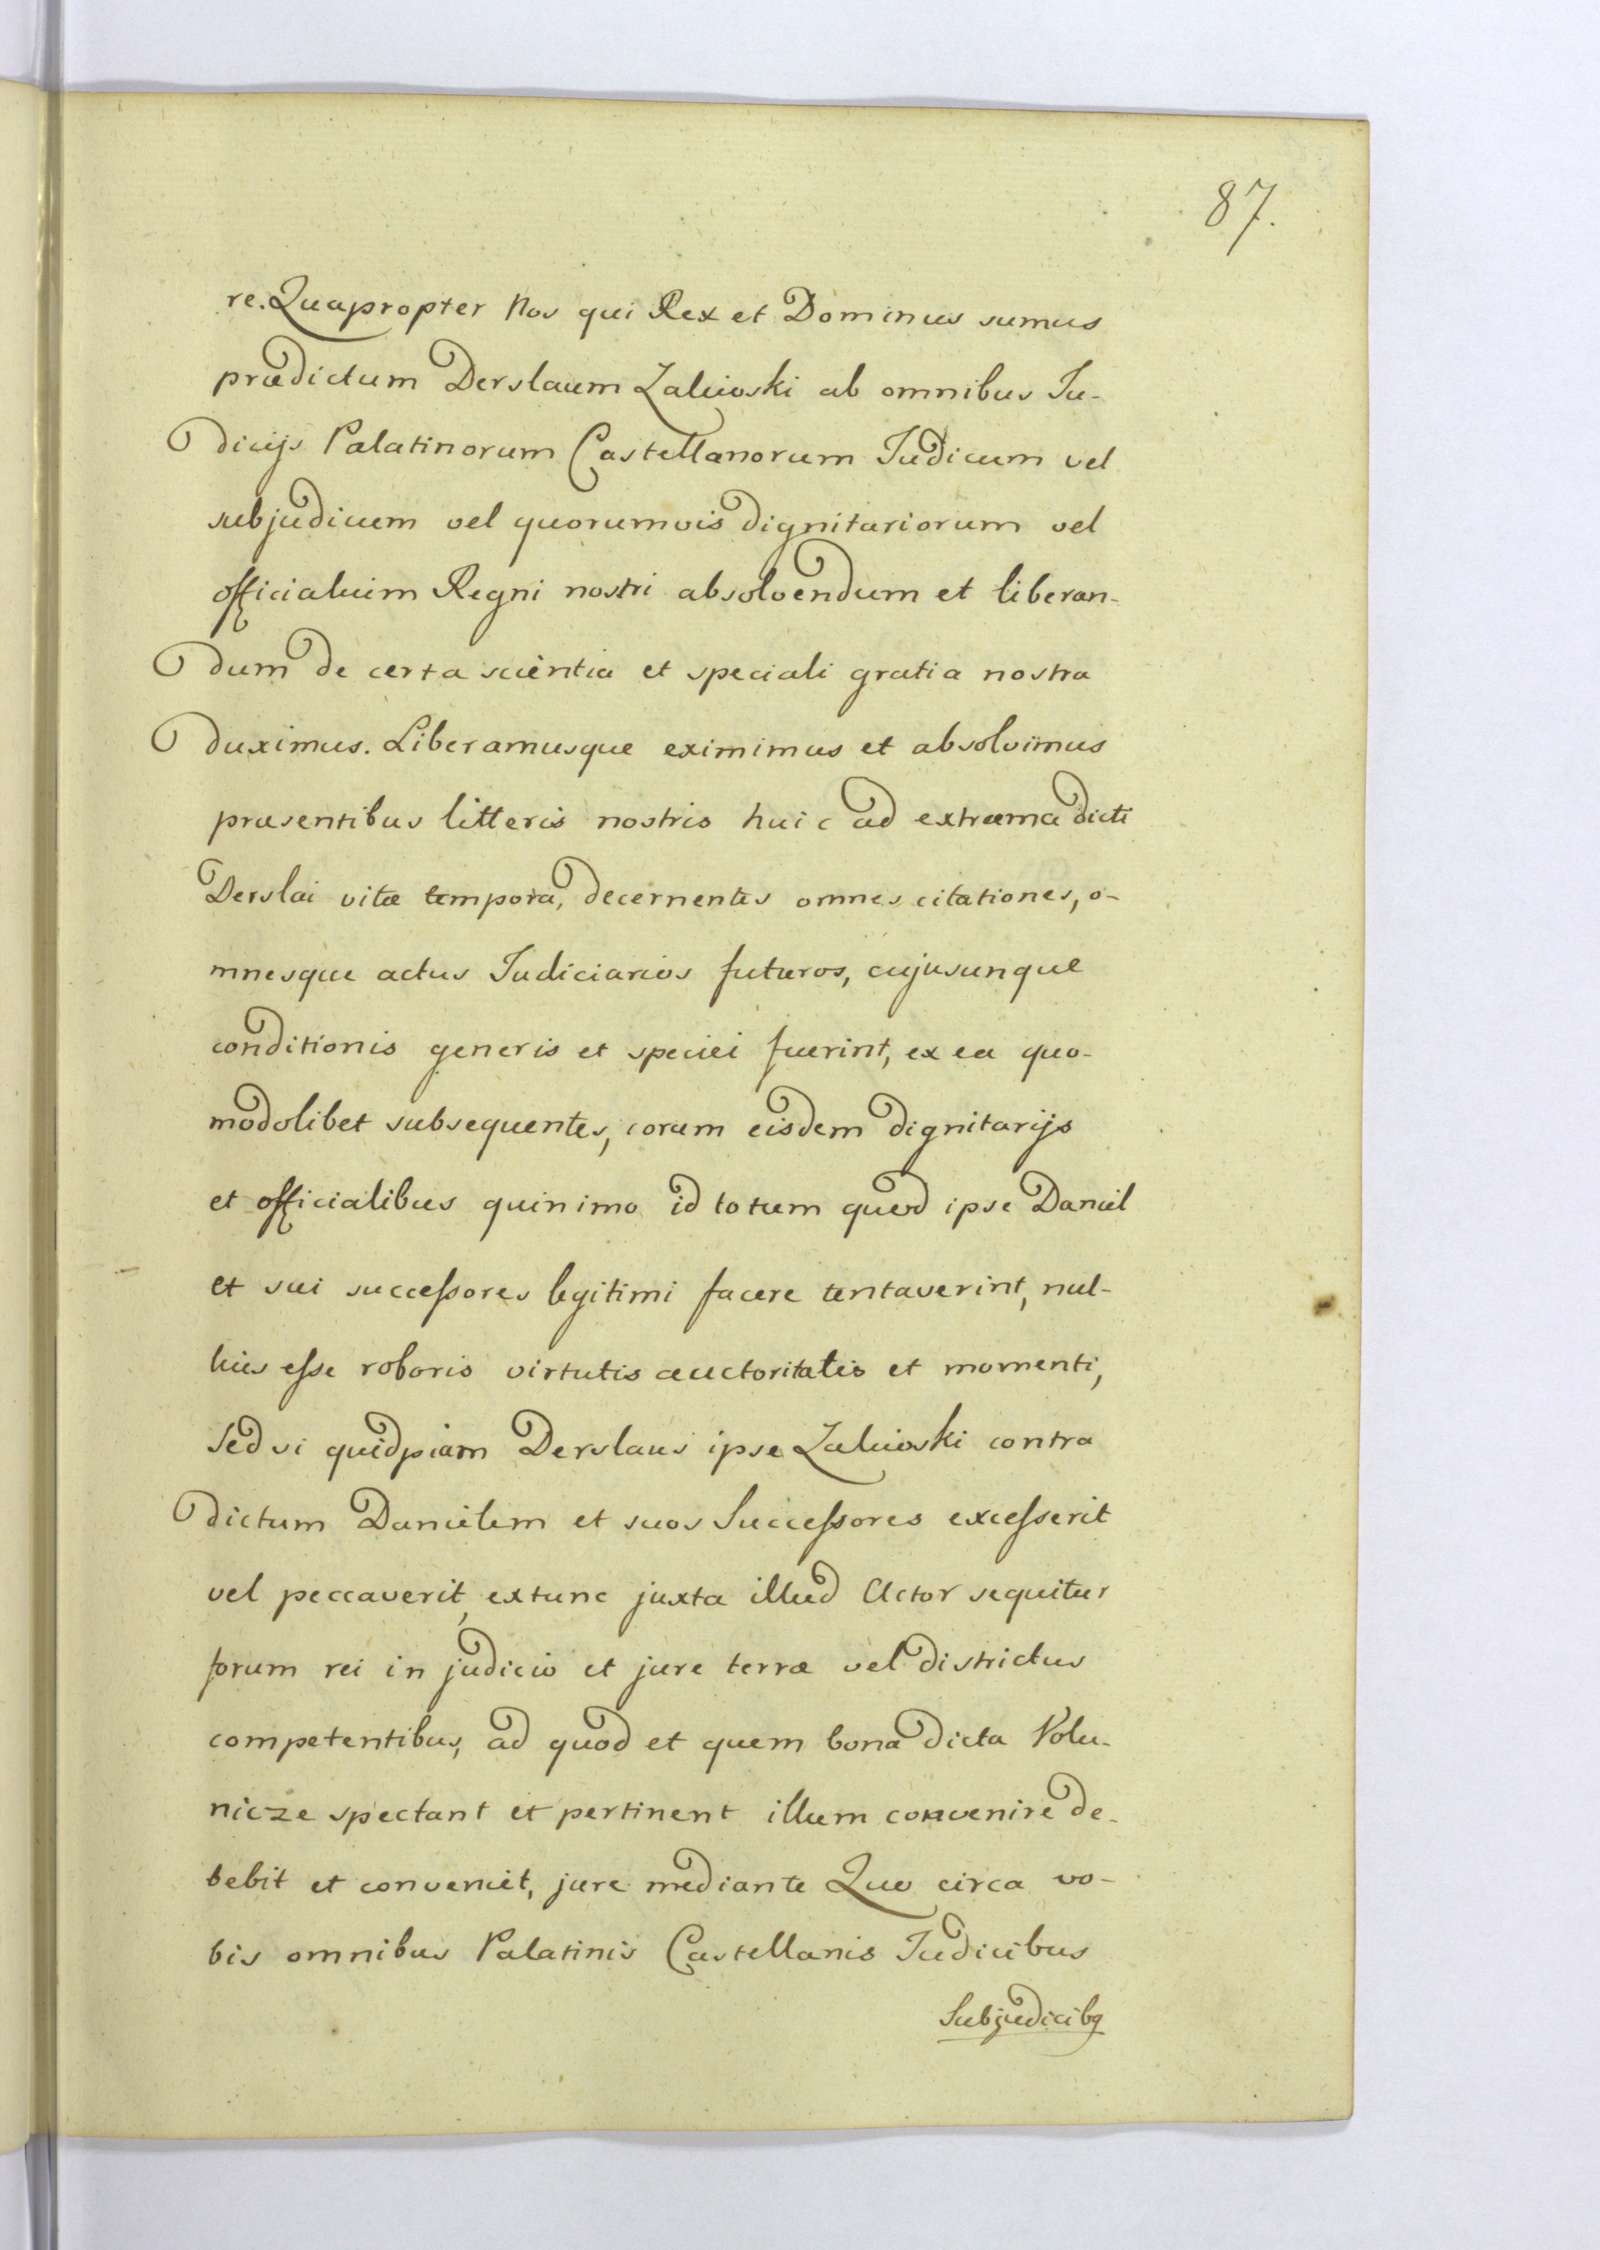 87.
re. Quapropter Nos qui Rex et Dominus sumus
prædictum Derslaum Zaluoski ab omnibus Ju-
dicijs Palatinorum Castellanorum Judicum vel
subjudicum vel quorumvis dignitariorum vel
officialium Regni nostri absolvendum et liberan-
dum de certa scientia et speciali gratia nostra
duximus. Liberamusque eximimus et absolvimus
præsentibus litteris nostris huic ad extræma dicti
Derslai vitæ tempora, decernentes omnes citationes, o-
mnesque actus Judiciarios futuros, cujusunque
conditionis generis et speciei fuerint, ex ea quo-
modolibet subsequentes, coram eisdem dignitarijs
et officialibus quinimo id totum quod ipse Daniel
et sui successores legitimi facere tentaverint, nul-
lius esse roboris virtutis auctoritatis et momenti,
Sed si quidpiam Derslaus ipse Zaluoski contra
dictum Danielem et suos Successores excesserit
vel peccaverit, extunc juxta illud Actor sequitur
forum rei in judicio et jure terræ vel districtus
competentibus, ad quod et quem bona dicta Volu-
nicze spectant et pertinent illum convenire de-
bebit et conveniet, jure mediante Quo circa vo-
bis omnibus Palatinis Castellanis Judicibus
Subjudicibq